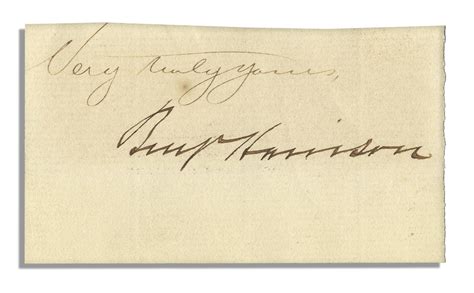 Very truly yours,
Benj Harrison